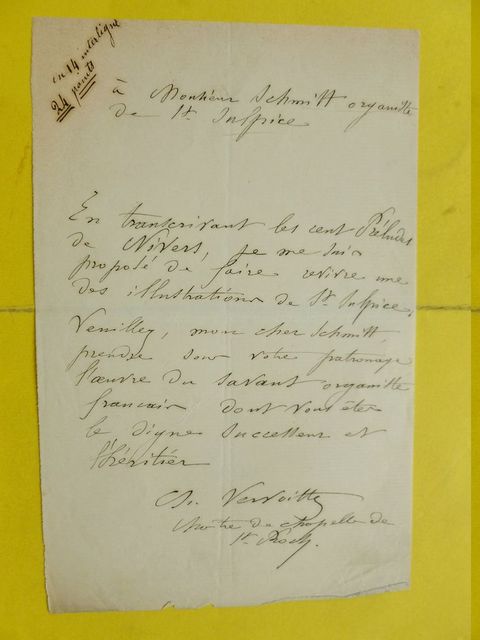 en 14 interligné
24 points
à Monsieur Schmitt organiste
de St. Sulpice
En transcrivant les cent Préludes
de Nivers, je me suis
proposé de faire revivre une
des illustrations de St Sulpice.
Veuillez, mon cher Schmitt,
prendre sous votre patronage
l'œuvre du savant organiste
français dont vous êtes
le digne successeur et
l'héritier
Ch. Vervoitte
Maître de chapelle de
St. Roch.